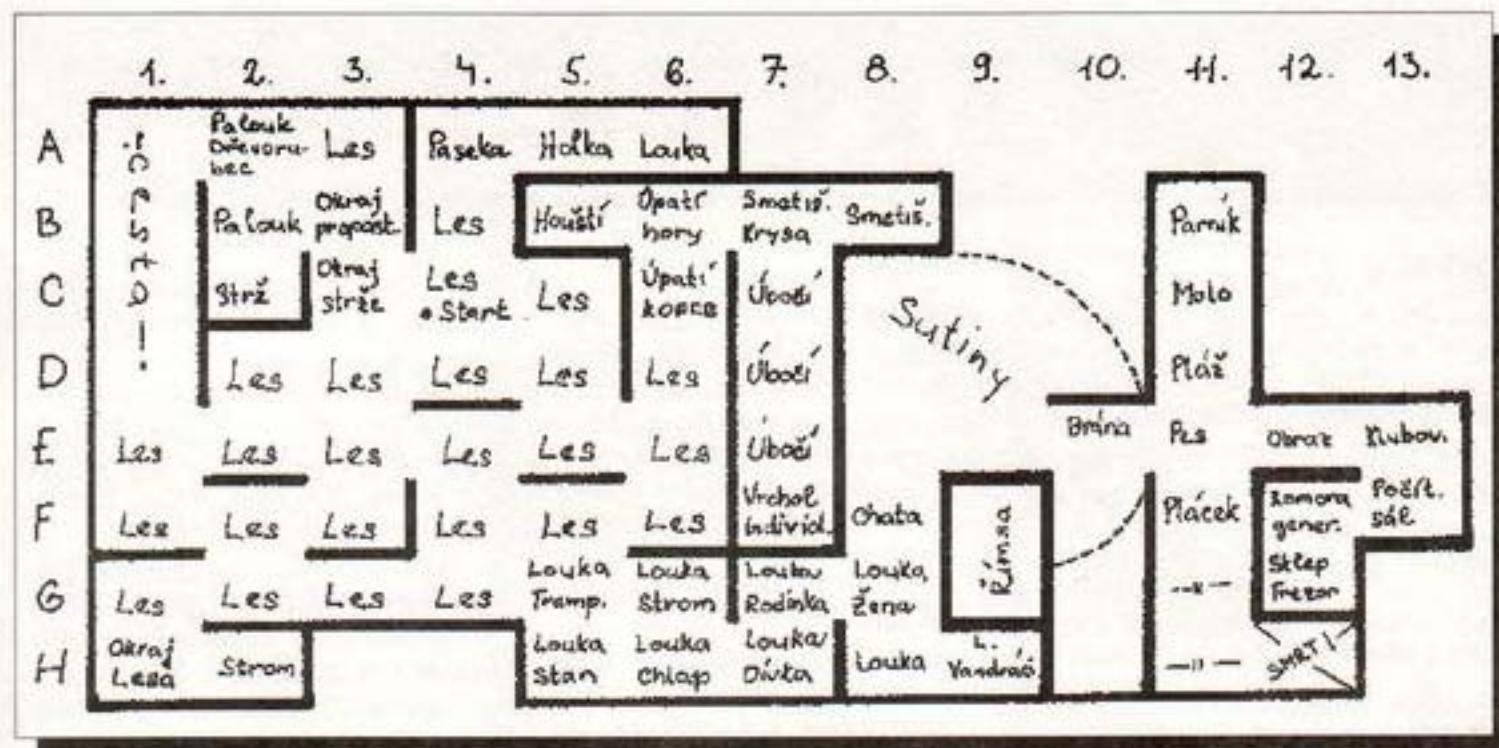 1. 2. 3. 4. 5. 6. 7. 8. 9. 10. 11. 12. 13.
A
B
C
D
E
F
G
H
.cesta-.
Palouk
Dřevoru-
bec
Les
Paseka
Holka
Louka
Palouk
Okraj
propast.
Les
Houští
Úpatí
hory
Smetiš.
Krysa
Smetiš.
Parník
Strž
Okraj
strže
Les
• Start
Les
Úpatí
kopce
Úbočí
Sutiny
Molo
Les
Les
Les
Les
Les
Úbočí
Pláž
Les
Les
Les
Les
Les
Les
Úbočí
Brána
Pes
Obraz
Klubov.
Les
Les
Les
Les
Les
Les
Vrchol
Individ.
Chata
Římsa
Plácek
Komora
gener.
Počít.
sál
Les
Les
Les
Les
Louka
Tramp.
Louka
Strom
Louka
Rodinka
Louka
Žena
-"-
Sklep
Trezor
Okraj
Lesa
Strom
Louka
Stan
Louka
Chlap
Louka
Dívka
Louka
L.
Vandrác.
-"-
SMRT!